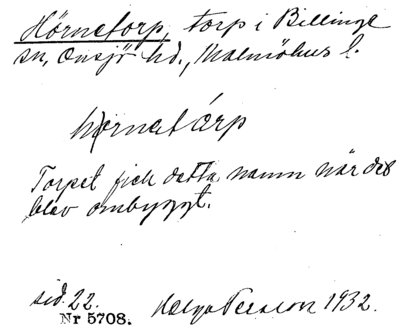 Hörnetorp, torp i Billinge
sn, Onsjö hd., Malmöhus l.
hörnatårp
Torpet fick detta namn när det
blev ombyggt.
sid. 22.
Nr 5708. Helga Persson 1932.